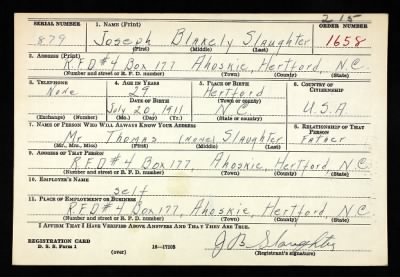 215
SERIAL NUMBER 1. NAME (Print) ORDER NUMBER
879 Joseph Blakely Slaughter 1658
(First) (Middle) (Last)
2. ADDRESS (Print)
R.F.D #4 Box 177 Ahoskie, Hertford N.C.
(Number and street or R. F. D. number) (Town) (County) (State)
3. TELEPHONE 4. AGE IN YEARS 5. PLACE OF BIRTH 6. COUNTRY OF CITIZENSHIP
None 29 Hertford
(Town or county)
DATE OF BIRTH
July 20, 1911 N.C. U.S.A
(Exchange) (Number) (Mo.) (Day) (Yr.) (State or country)
7. NAME OF PERSON WHO WILL ALWAYS KNOW YOUR ADDRESS 8. RELATIONSHIP OF THAT PERSON
Mr. Thomas (None) Slaughter Father
(Mr., Mrs., Miss) (First) (Middle) (Last)
9. ADDRESS OF THAT PERSON
R.F.D #4 Box 177, Ahoskie, Hertford N.C.
(Number and street or R. F. D. number) (Town) (County) (State)
10. EMPLOYER'S NAME
Self
11. PLACE OF EMPLOYMENT OR BUSINESS
R.F.D #4 Box 177, Ahoskie, Hertford N.C.
(Number and street or R. F. D. number) (Town) (County) (State)
I AFFIRM THAT I HAVE VERIFIED ABOVE ANSWERS AND THAT THEY ARE TRUE.
REGISTRATION CARD
D. S. S. Form 1 16—17105 J B Slaughter
(over) (Registrant's signature)